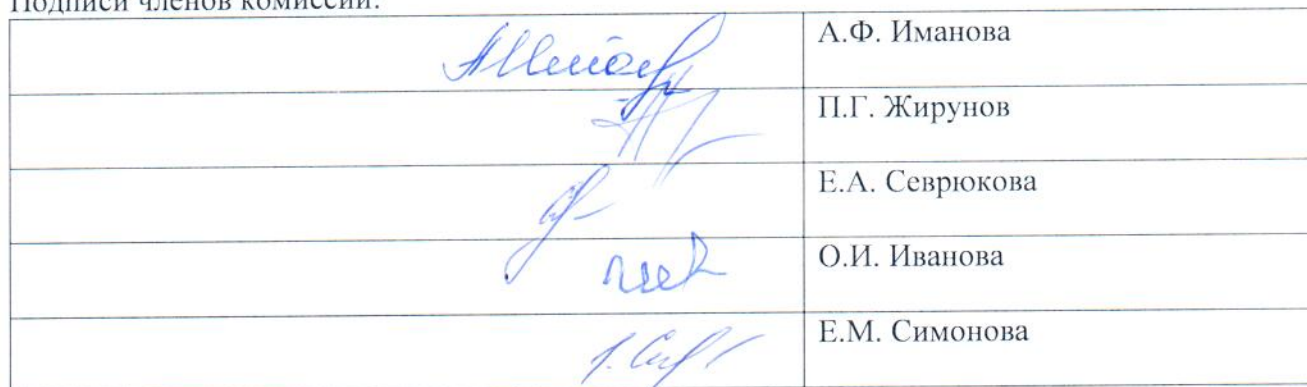 Подписи членов комиссии:
А.Ф. Иманова
П.Г. Жирунов
Е.А. Севрюкова
О.И. Иванова
Е.М. Симонова